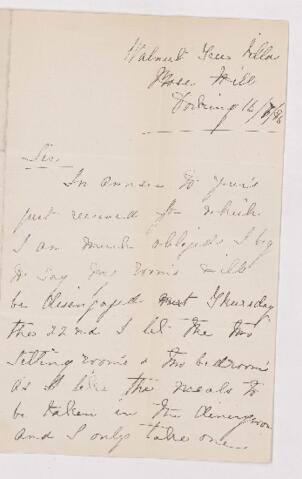 Walnut Tree Villa
Rose Hill
Dorking 16/7/96
Sir
In answer to yours
just received for which
I am much obliged I beg
to say the rooms will
be disengaged next Thursday
the 22nd I let the two
sitting rooms & two bedrooms
as I like the meals to
be taken in the diningroom
and I only take one